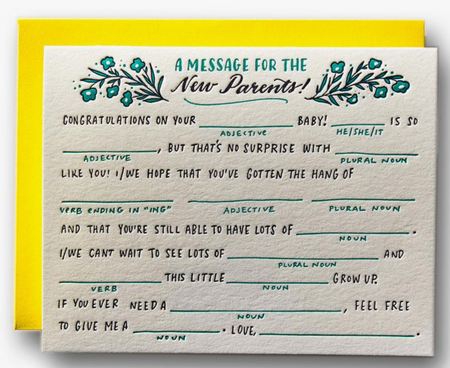 A MESSAGE FOR THE
New Parents!
CONGRATULATIONS ON YOUR ____________ BABY! ____ IS SO
ADJECTIVE HE/SHE/IT
____________, BUT THAT'S NO SURPRISE WITH ____________
ADJECTIVE PLURAL NOUN
LIKE YOU! I/WE HOPE THAT YOU'VE GOTTEN THE HANG OF
____________ ____________ ____________
VERB ENDING IN "ING" ADJECTIVE PLURAL NOUN
AND THAT YOU'RE STILL ABLE TO HAVE LOTS OF ____________.
NOUN
I/WE CANT WAIT TO SEE LOTS OF ____________ AND
PLURAL NOUN
____________ THIS LITTLE ____________ GROW UP.
VERB NOUN
IF YOU EVER NEED A ____________, FEEL FREE
NOUN
TO GIVE ME A ____________. LOVE, ____________.
NOUN